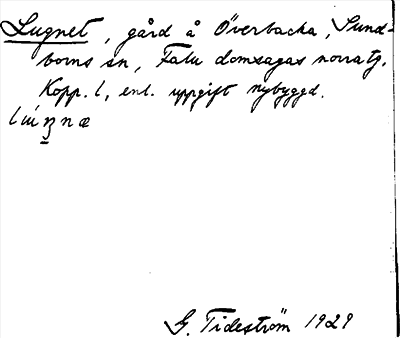 Lugnet, gård å Överbacka, Sund-
borns sn, Falu domsagas norra tg.
Kopp. l, enl. uppgift nybyggd.
G. Tideström 1929